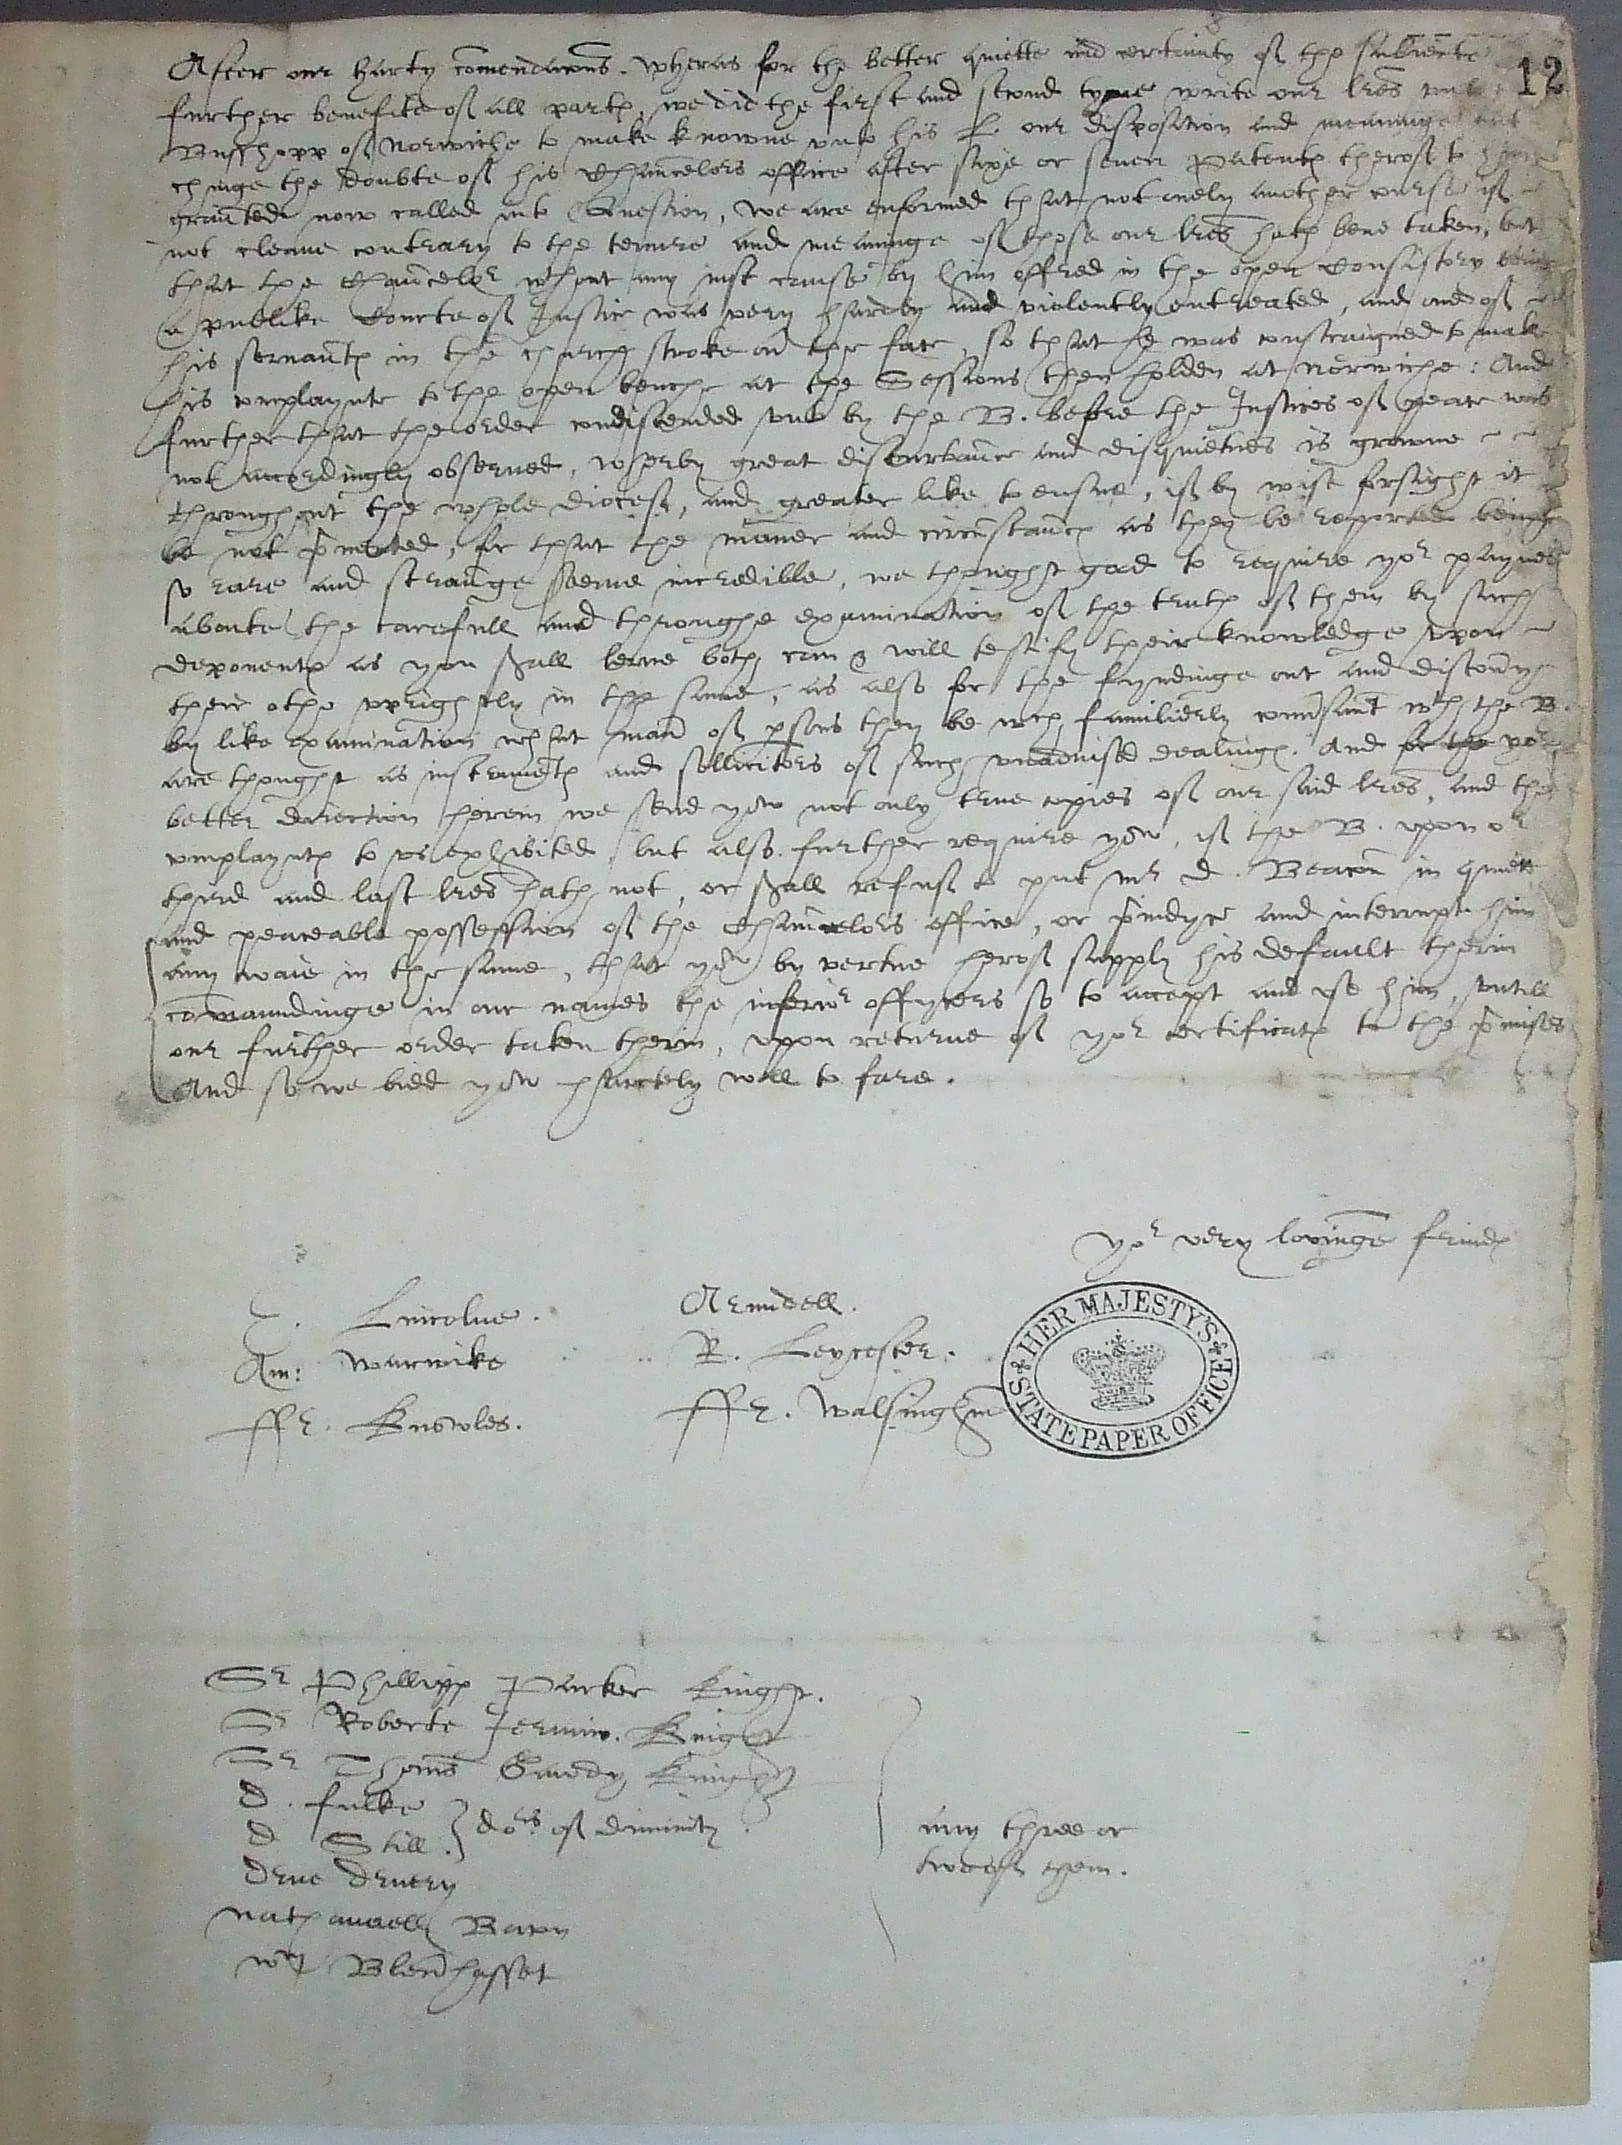 After our harty comendacons. Wheras for the better quiette and certainty of the subiecte
further benefite of all partes, we did the first and second tyme write our lres unto
12
Busshopp of Norwiche to make knowne unto his L. our disposition and meaninge
chinge the doubte of his Chauncelors office after sixe or seven Patentes therof to him
graunted now called into Question, we are enformed that not onely another course if
not cleane contrary to the tenure and meaninge of those our lres hath bene taken, but
that the Chauncelor without any iust cause by him offred in the open Consistory being
a publike Courte of Justice was very hardly and violently entreated, and one of
his servantes in the church stroke on the face, so that he was constraigned to make
his complaynte to the open benche at the Sessions then holden at Norwiche: And
further that the order condiscended unto by the B. before the Justices of peace was
not accordingly observed, wherby great disturbance and disquietnes is growne
throughout the whole Diocese, and greater like to ensue, if by wise forsight it
be not prvented, for that the maner and circumstances as they be reported being
so rare and straunge seeme incredible, we thought good to require yor paynes
aboute the carefull and throughe examination of the truth of them by such
deponentes as you shall lerne both can & will testify their knowledge upon
their othe uprightly in the same, as also for the fyndinge out and discovery
by like examination what maner of psons they be wch familierly conversant wth the B.
are thought as instrumentes and sollicitors of such unadvised dealinges. And for the yor
better direction herein we send yow not only true copies of our said lres, and the
complayntes to us exhibited, but also further require yow, if the B. upon or
third and last lres hath not, or shall refuse to put mr D. Beacon in quiett
and peaceable possession of the Chauncelors office, or preiudyce and interrupt him
any waie in the same, that yow by vertue herof supply his default therin
comaundinge in our names the inferior officers so to accept and use him, untill
our further order taken therin, upon returne of yor certificate to the prmises
And so we bidd yow hartely well to fare.
yor very lovinge frendes
E. Lincolne. Arundell.
Am: Warwike R. Leycester.
ffr. Knowles. ffr. Walsingham
HER MAJESTY'S STATE PAPER OFFICE
Sr Phillipp Parker Knight.
Sr Roberte Jermin. Knight
Sr Thoms Gawdy Knight
D. fulke
D Still. } dors of diuinity.
Drue Drury
Nathanaell Bacon
Wm Blenhasset
any three or
two of them.